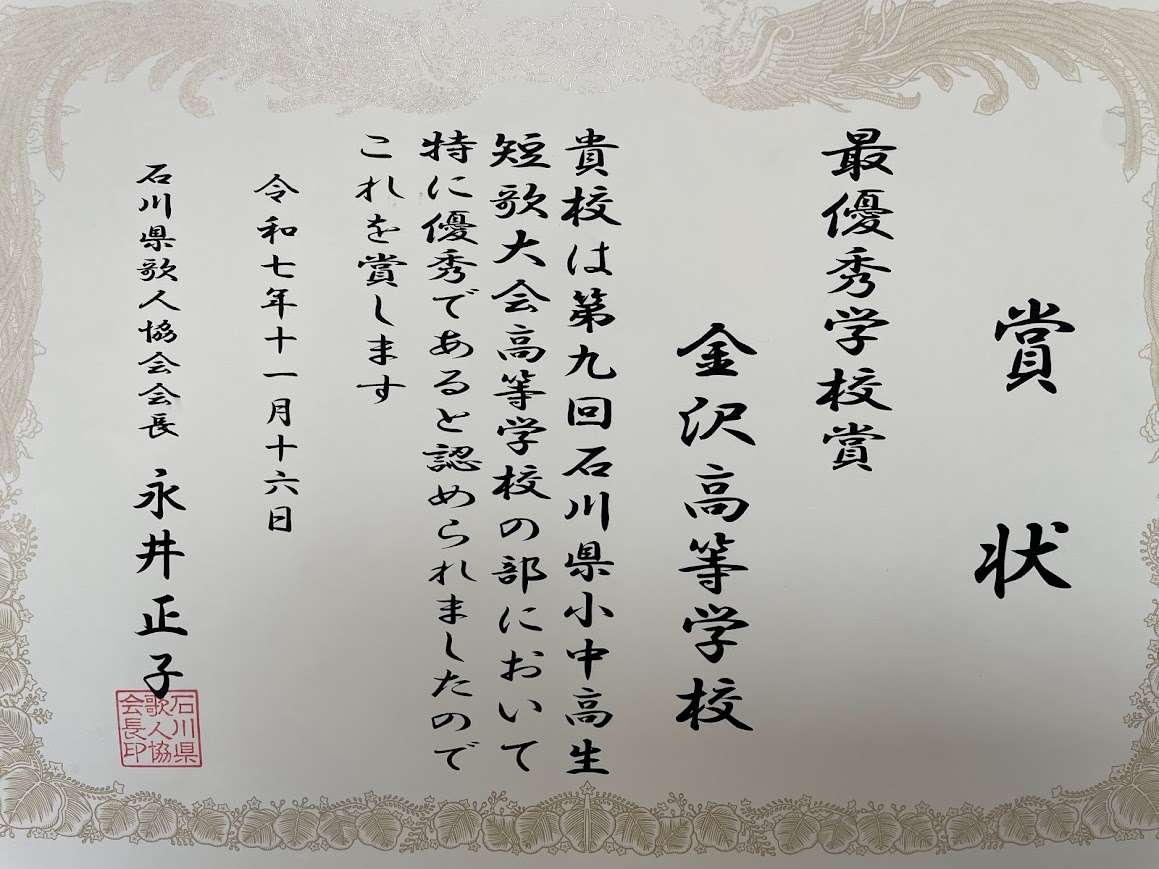 賞状
最優秀学校賞
金沢高等学校
貴校は第九回石川県小中高生
短歌大会高等学校の部において
特に優秀であると認められましたので
これを賞します
令和七年十一月十六日
石川県歌人協会会長 永井正子
石川県
歌人協
会長印